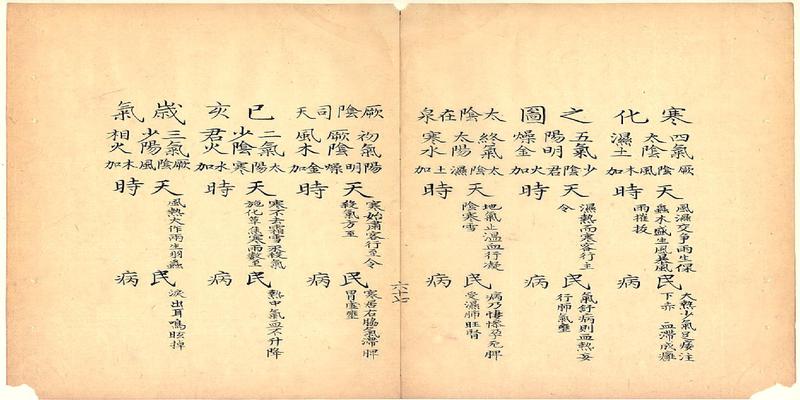 寒化之圖
太陰在泉
四氣
太陰
濕土
厥陰風木加
天時
風濕交爭雨生倮
蟲木盛生風暴風
雨摧拔
民病
大熱少氣足痿注
下赤 血滯成癰
五氣
陽明
燥金
少陰君火加
天時
濕熱而寒客行主
令
民病
氣舒病則血熱妄
行肺氣壅
終氣
太陽
寒水
太陰濕土加
天時
地氣正溫血行凝
陰寒雪
民病
病乃悽慘孕死脾
受濕肺旺腎
六十七
厥陰司天
巳亥歲氣
初氣
厥陰
風木
陽明燥金加
天時
寒始肅客行至令
殺氣方至
民病
寒居右脇氣滯脾
胃虛壅
二氣
少陰
君火
太陽寒水加
天時
寒不去霜雪冰殺氣
施化草焦寒雨數至
民病
熱中氣血不升降
三氣
少陽
相火
厥陰風木加
天時
風熱大作雨生羽蟲
民病
淚出耳鳴眩掉